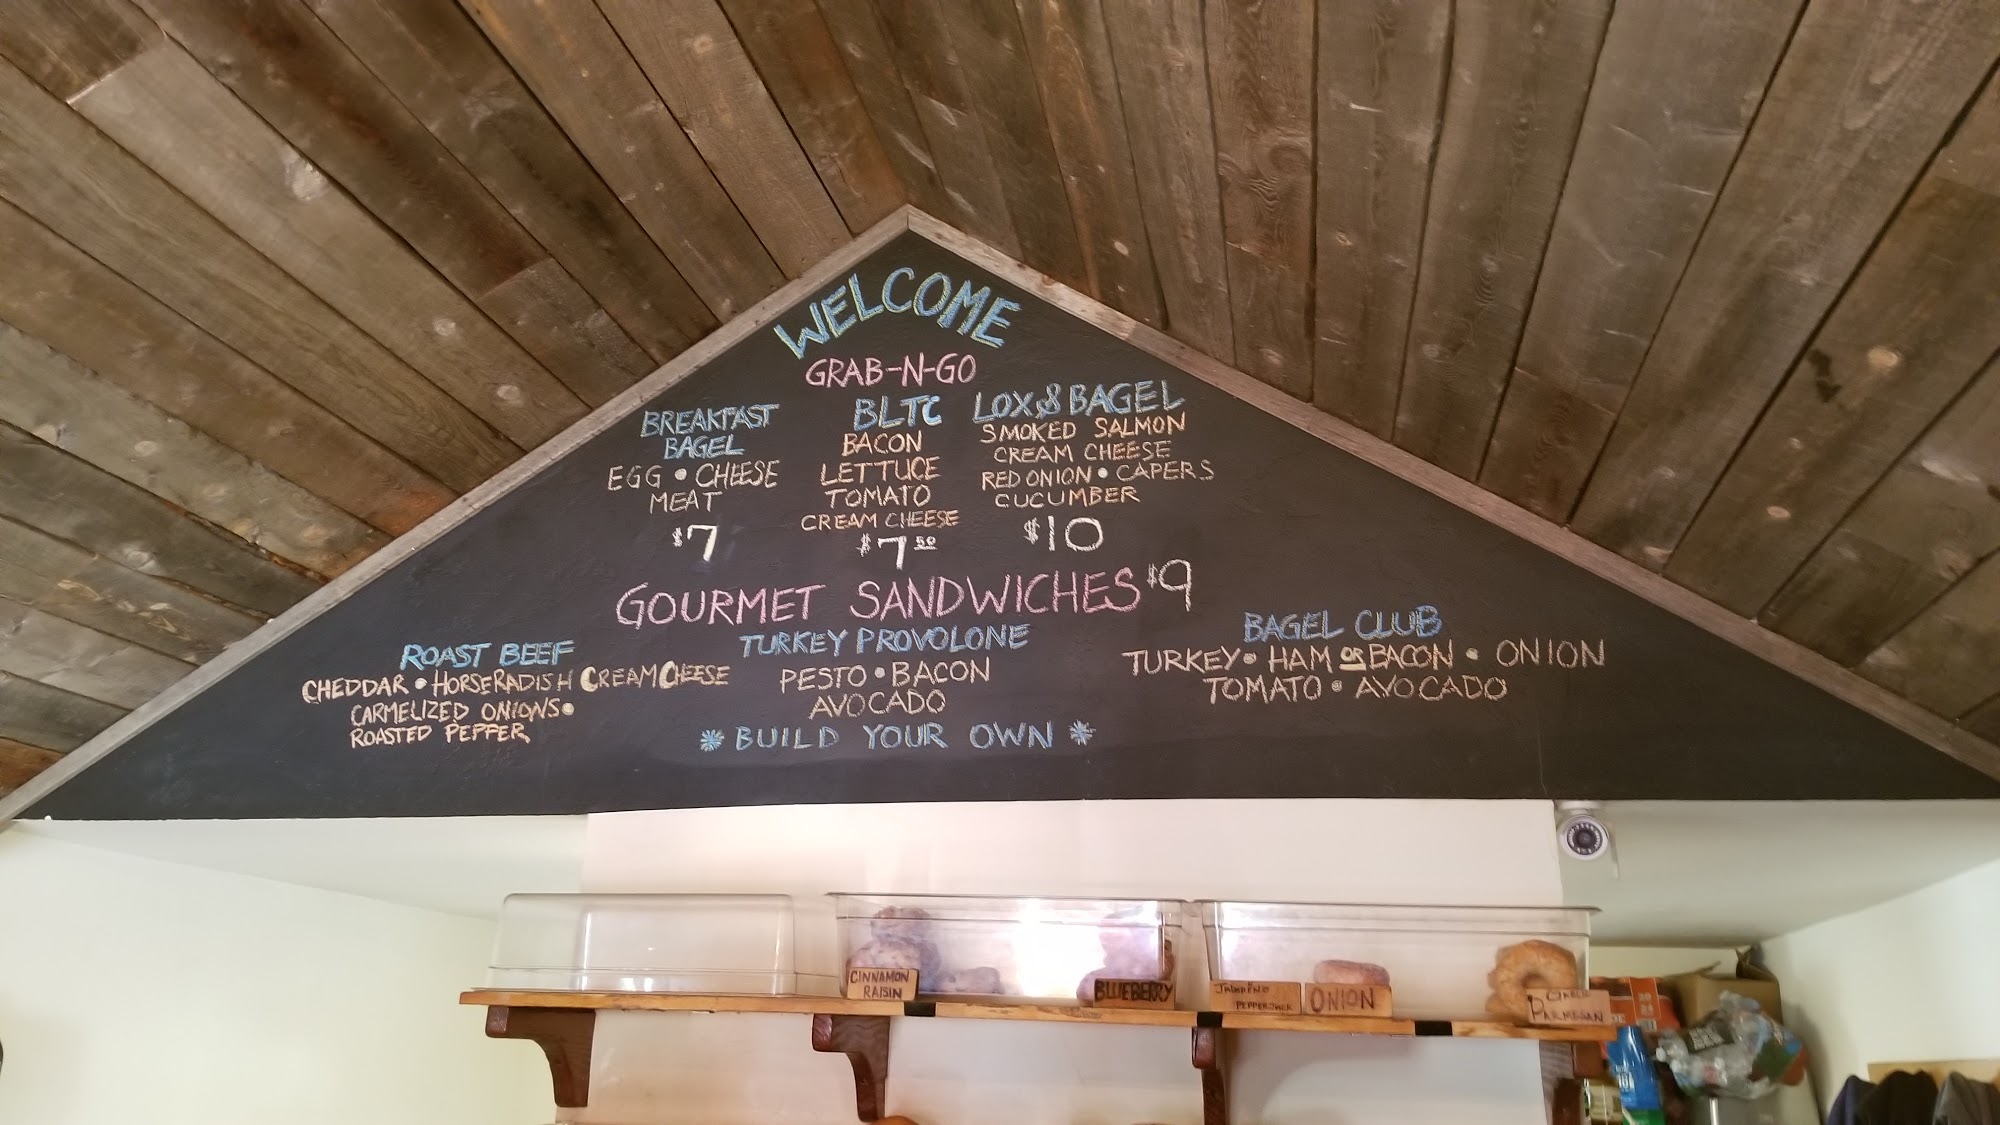 WELCOME
GRAB-N-GO
BREAKFAST
BAGEL
EGG • CHEESE
MEAT
$7
BLTC
BACON
LETTUCE
TOMATO
CREAM CHEESE
$7.50
LOX & BAGEL
SMOKED SALMON
CREAM CHEESE
RED ONION • CAPERS
CUCUMBER
$10
GOURMET SANDWICHES $9
ROAST BEEF
CHEDDAR • HORSERADISH CREAM CHEESE
CARMELIZED ONIONS •
ROASTED PEPPER
TURKEY PROVOLONE
PESTO • BACON
AVOCADO
BAGEL CLUB
TURKEY • HAM OR BACON • ONION
TOMATO • AVOCADO
* BUILD YOUR OWN *
CINNAMON
RAISIN
BLUEBERRY
JALAPEÑO
PEPPERJACK
ONION
PARMESAN